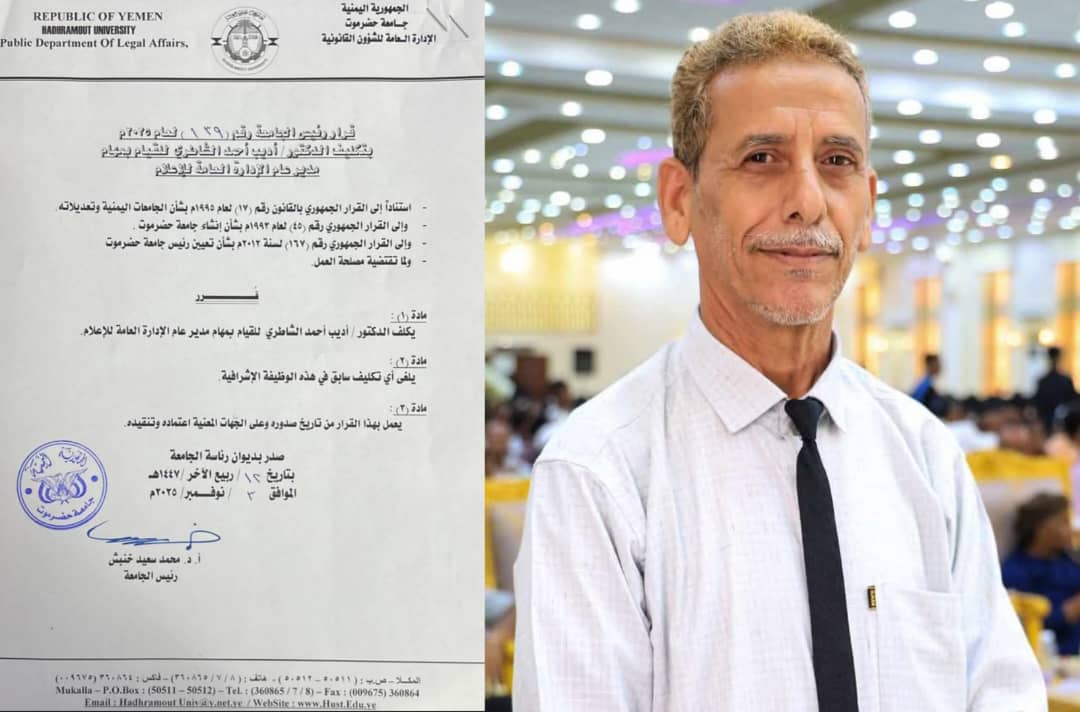 REPUBLIC OF YEMEN
HADHRAMOUT UNIVERSITY
Public Department Of Legal Affairs,
الجمهورية اليمنية
جامعة حضرموت
الإدارة العامة للشؤون القانونية
قرار رئيس الجامعة رقم (١٣٩) لعام ٢٠٢٥م
بتكليف الدكتور/ أديب أحمد الشاطري للقيام بمهام
مدير عام الإدارة العامة للإعلام
- استناداً إلى القرار الجمهوري بالقانون رقم (١٧) لعام ١٩٩٥م بشأن الجامعات اليمنية وتعديلاته.
- وإلى القرار الجمهوري رقم (٤٥) لعام ١٩٩٣م بشأن إنشاء جامعة حضرموت .
- وإلى القرار الجمهوري رقم (١٦٧) لسنة ٢٠١٢م بشأن تعيين رئيس جامعة حضرموت
- ولما تقتضية مصلحة العمل.
قـــرر
مادة (١) :
يكلف الدكتور / أديب أحمد الشاطري للقيام بمهام مدير عام الإدارة العامة للإعلام.
مادة (٢) :
يلغى أي تكليف سابق في هذه الوظيفة الإشرافية.
مادة (٣) :
يعمل بهذا القرار من تاريخ صدوره وعلى الجهات المعنية اعتماده وتنقيده.
صدر بديوان رئاسة الجامعة
بتاريخ ١٢/ ربيع الأخر /١٤٤٧هـ
الموافق ٣ / نوفمبر/ ٢٠٢٥م
جامعة حضرموت
أ. د. محمد سعيد خنبش
رئيس الجامعة
المكلا – ص.ب : (٥٠٥١١ – ٥٠٥١٢) – هاتف : (٣٦٠٨٦٥/٧/٨) – فاكس : ٣٦٠٨٦٤ (٠٠٩٦٧٥)
Mukalla – P.O.Box : (50511 – 50512) – Tel. : (360865 / 7 / 8) – Fax : (009675) 360864
Email : Hadhramout Univ@y.net.ye / WebSite : www.Hust.Edu.ye